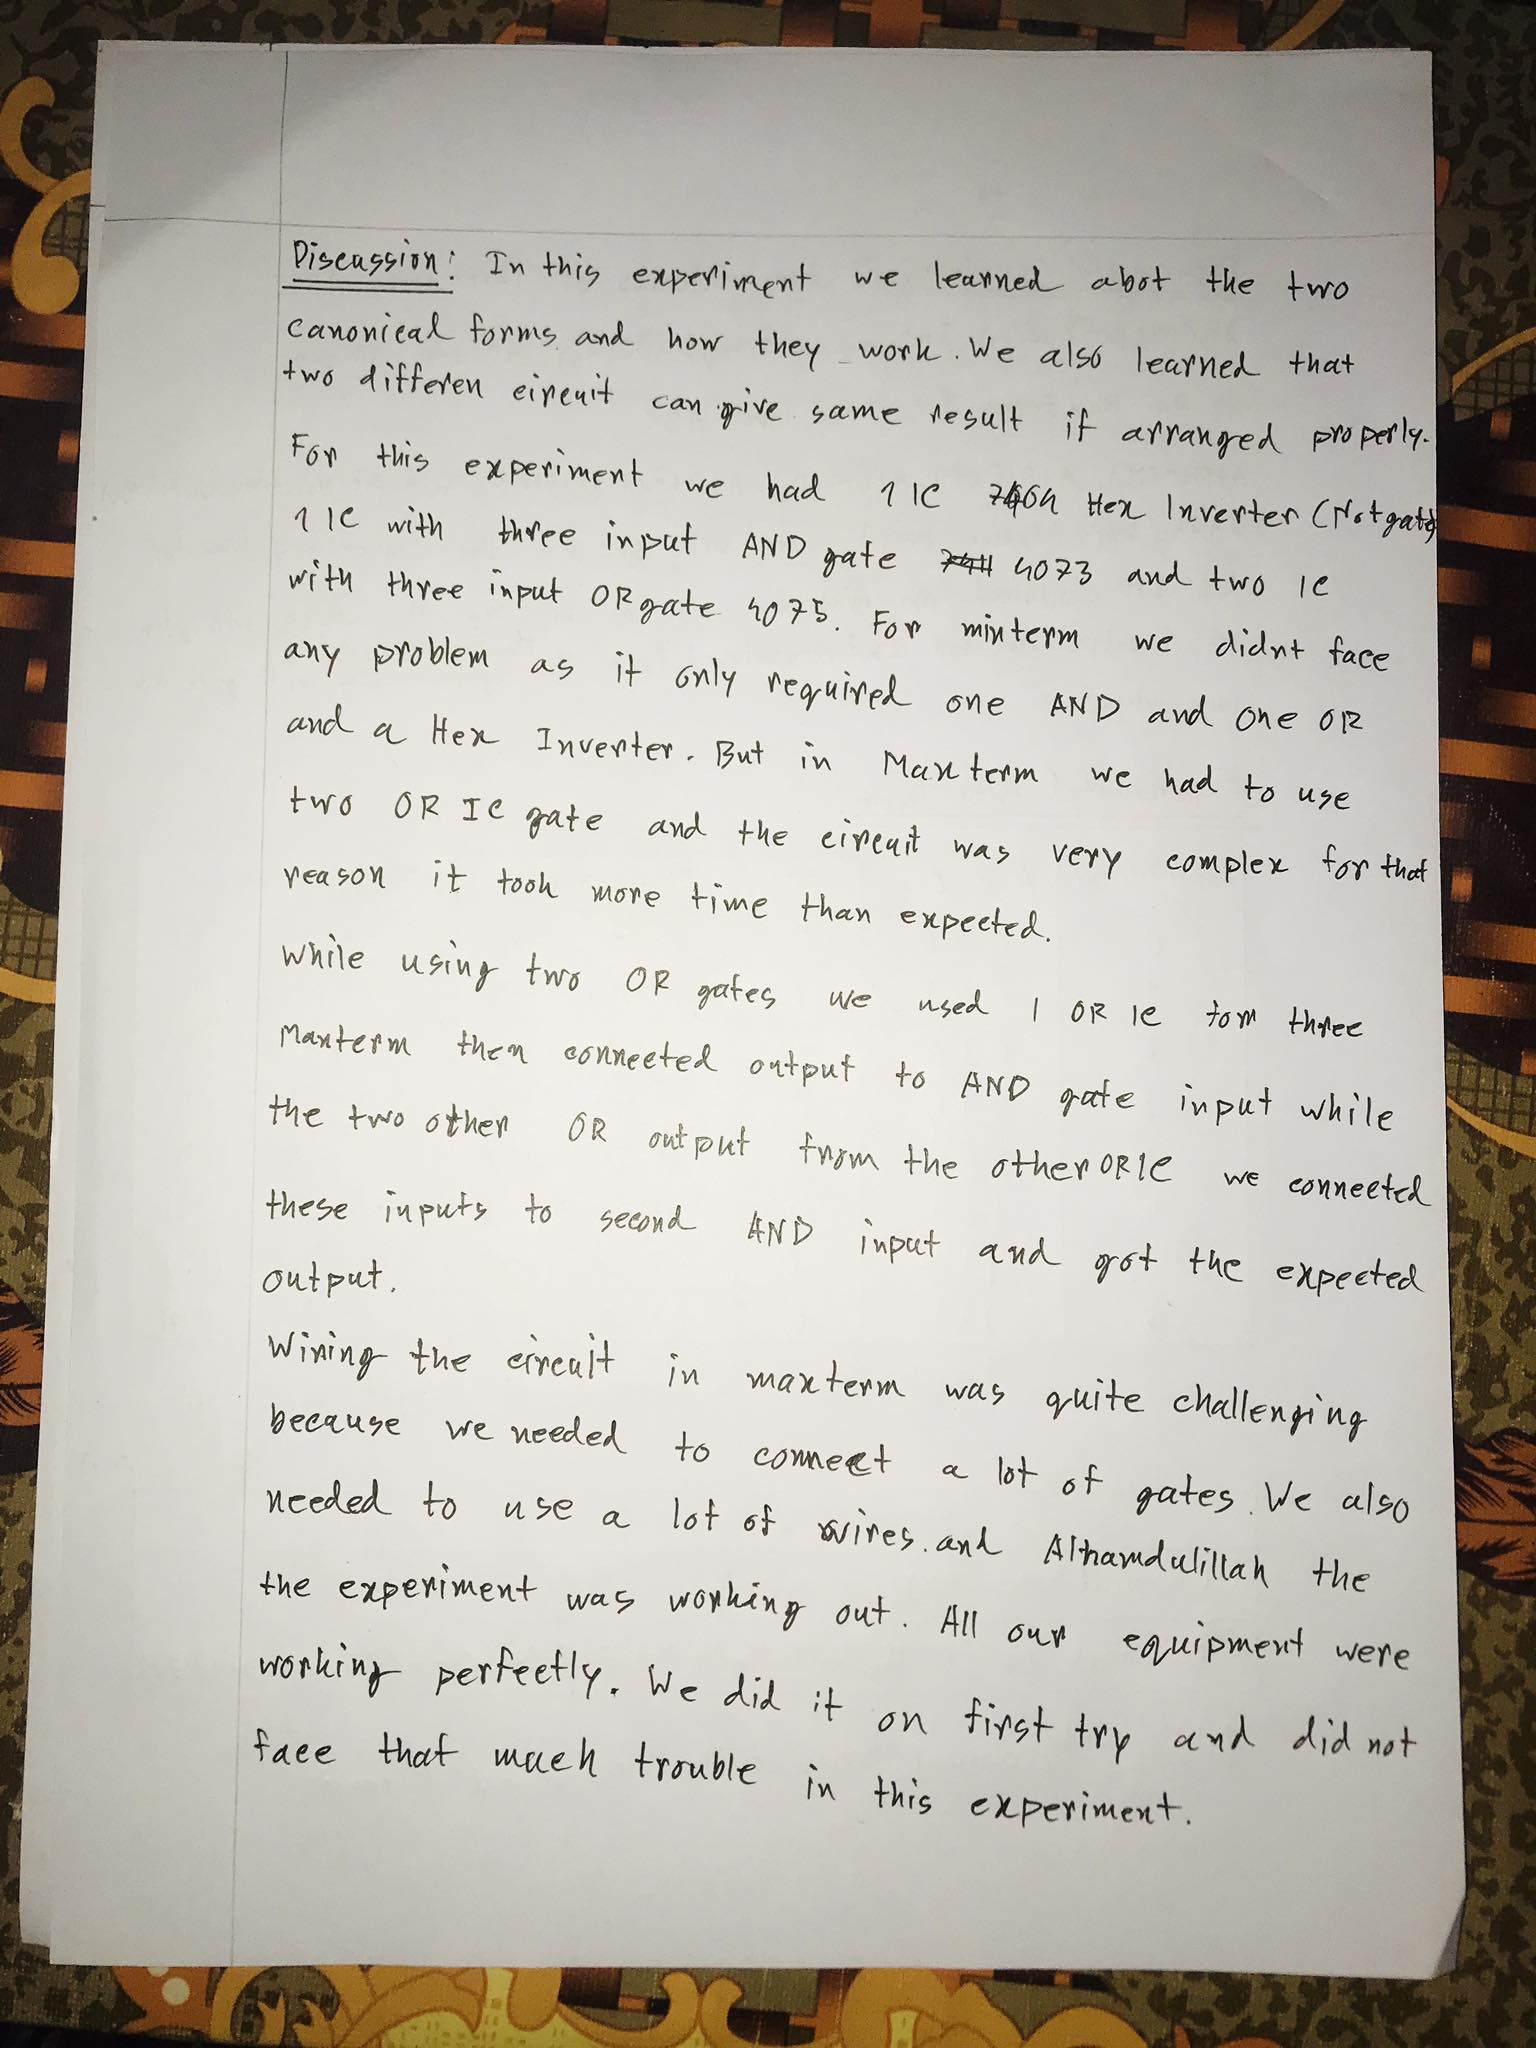 Discussion: In this experiment we learned abot the two
canonical forms and how they work. We also learned that
two differen circuit can give same result if arranged properly.
For this experiment we had 1 IC 7404 Hex Inverter (Not gate)
1 IC with three input AND gate 4073 and two IC
with three input OR gate 4075. For minterm we didnt face
any problem as it only required one AND and one OR
and a Hex Inverter. But in Maxterm we had to use
two OR IC gate and the circuit was very complex for that
reason it took more time than expected.
While using two OR gates we used 1 OR IC for three
Maxterm then connected output to AND gate input while
the two other OR output from the other OR IC we connected
these inputs to second AND input and got the expected
output.
Wiring the circuit in maxterm was quite challenging
because we needed to connect a lot of gates. We also
needed to use a lot of wires. and Alhamdulillah the
the experiment was working out. All our equipment were
working perfectly. We did it on first try and did not
face that much trouble in this experiment.